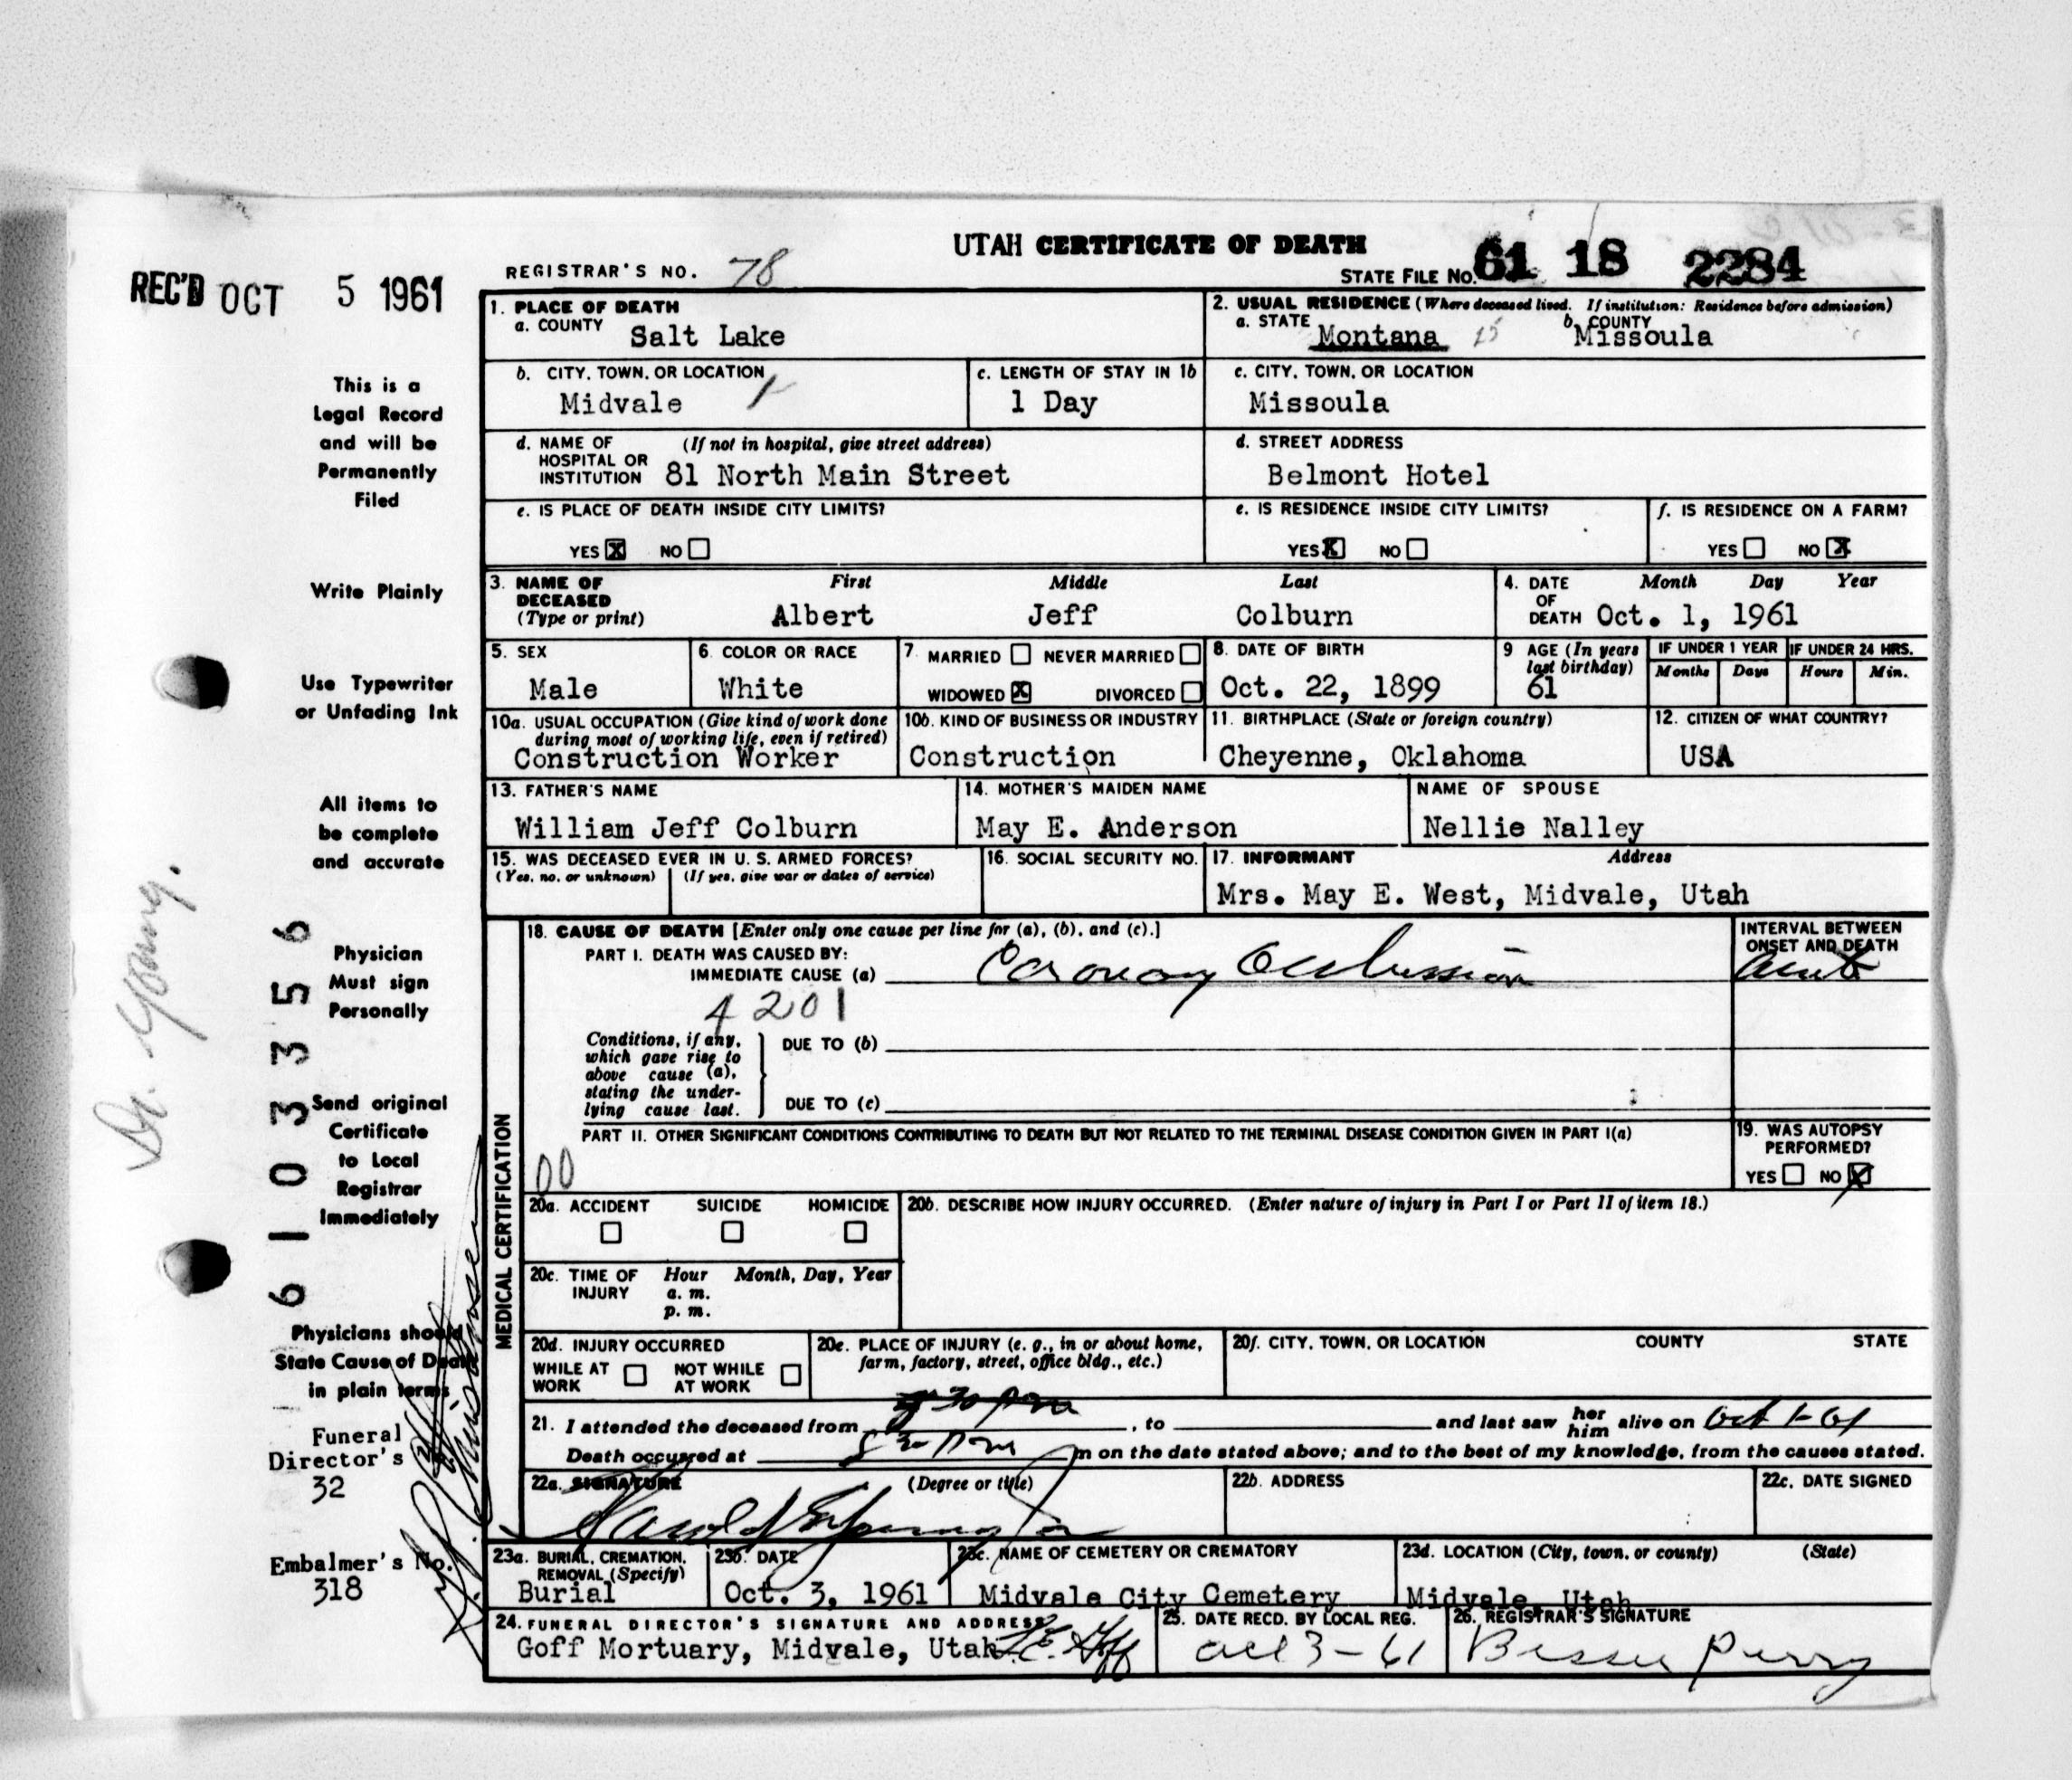 UTAH CERTIFICATE OF DEATH
REC'D OCT 5 1961
REGISTRAR'S NO. 78
STATE FILE NO. 61 18 2284
This is a
Legal Record
and will be
Permanently
Filed
Write Plainly
Use Typewriter
or Unfading Ink
All items to
be complete
and accurate
Physician
Must sign
Personally
Send original
Certificate
to Local
Registrar
Immediately
Physicians should
State Cause of Death
in plain terms
Funeral
Director's
32
Embalmer's No.
318
Dr. Young.
61 03356
1. PLACE OF DEATH
a. COUNTY Salt Lake
2. USUAL RESIDENCE (Where deceased lived. If institution: Residence before admission)
a. STATE Montana b. COUNTY Missoula
b. CITY, TOWN, OR LOCATION
Midvale
c. LENGTH OF STAY IN 1b
1 Day
c. CITY, TOWN, OR LOCATION
Missoula
d. NAME OF HOSPITAL OR INSTITUTION (If not in hospital, give street address)
81 North Main Street
d. STREET ADDRESS
Belmont Hotel
e. IS PLACE OF DEATH INSIDE CITY LIMITS?
YES X NO
e. IS RESIDENCE INSIDE CITY LIMITS?
YES X NO
f. IS RESIDENCE ON A FARM?
YES NO X
3. NAME OF DECEASED (Type or print)
First Middle Last
Albert Jeff Colburn
4. DATE OF DEATH Month Day Year
Oct. 1, 1961
5. SEX
Male
6. COLOR OR RACE
White
7 MARRIED NEVER MARRIED
WIDOWED X DIVORCED
8. DATE OF BIRTH
Oct. 22, 1899
9 AGE (In years last birthday)
61
IF UNDER 1 YEAR
Months Days
IF UNDER 24 HRS.
Hours Min.
10a. USUAL OCCUPATION (Give kind of work done during most of working life, even if retired)
Construction Worker
10b. KIND OF BUSINESS OR INDUSTRY
Construction
11. BIRTHPLACE (State or foreign country)
Cheyenne, Oklahoma
12. CITIZEN OF WHAT COUNTRY?
USA
13. FATHER'S NAME
William Jeff Colburn
14. MOTHER'S MAIDEN NAME
May E. Anderson
NAME OF SPOUSE
Nellie Nalley
15. WAS DECEASED EVER IN U. S. ARMED FORCES?
(Yes, no, or unknown) (If yes, give war or dates of service)
16. SOCIAL SECURITY NO.
17. INFORMANT Address
Mrs. May E. West, Midvale, Utah
MEDICAL CERTIFICATION
18. CAUSE OF DEATH [Enter only one cause per line for (a), (b), and (c).]
PART I. DEATH WAS CAUSED BY:
IMMEDIATE CAUSE (a) Coronary Occlusion
4201
INTERVAL BETWEEN
ONSET AND DEATH
acute
Conditions, if any,
which gave rise to
above cause (a),
stating the under-
lying cause last.
DUE TO (b)
DUE TO (c)
PART II. OTHER SIGNIFICANT CONDITIONS CONTRIBUTING TO DEATH BUT NOT RELATED TO THE TERMINAL DISEASE CONDITION GIVEN IN PART I(a)
00
19. WAS AUTOPSY
PERFORMED?
YES NO X
20a. ACCIDENT SUICIDE HOMICIDE
20b. DESCRIBE HOW INJURY OCCURRED. (Enter nature of injury in Part I or Part II of item 18.)
20c. TIME OF INJURY Hour Month, Day, Year
a. m.
p. m.
20d. INJURY OCCURRED
WHILE AT WORK NOT WHILE AT WORK
20e. PLACE OF INJURY (e. g., in or about home, farm, factory, street, office bldg., etc.)
20f. CITY, TOWN, OR LOCATION COUNTY STATE
21. I attended the deceased from , to and last saw her him alive on Oct 1-61
Death occurred at 8 30 pm m on the date stated above; and to the best of my knowledge, from the causes stated.
22a. SIGNATURE (Degree or title)
22b. ADDRESS
22c. DATE SIGNED
23a. BURIAL, CREMATION, REMOVAL (Specify)
Burial
23b. DATE
Oct. 3, 1961
23c. NAME OF CEMETERY OR CREMATORY
Midvale City Cemetery
23d. LOCATION (City, town, or county) (State)
Midvale, Utah
24. FUNERAL DIRECTOR'S SIGNATURE AND ADDRESS
Goff Mortuary, Midvale, Utah L.E. Goff
25. DATE RECD. BY LOCAL REG.
Oct 3-61
26. REGISTRAR'S SIGNATURE
Bessie Perry